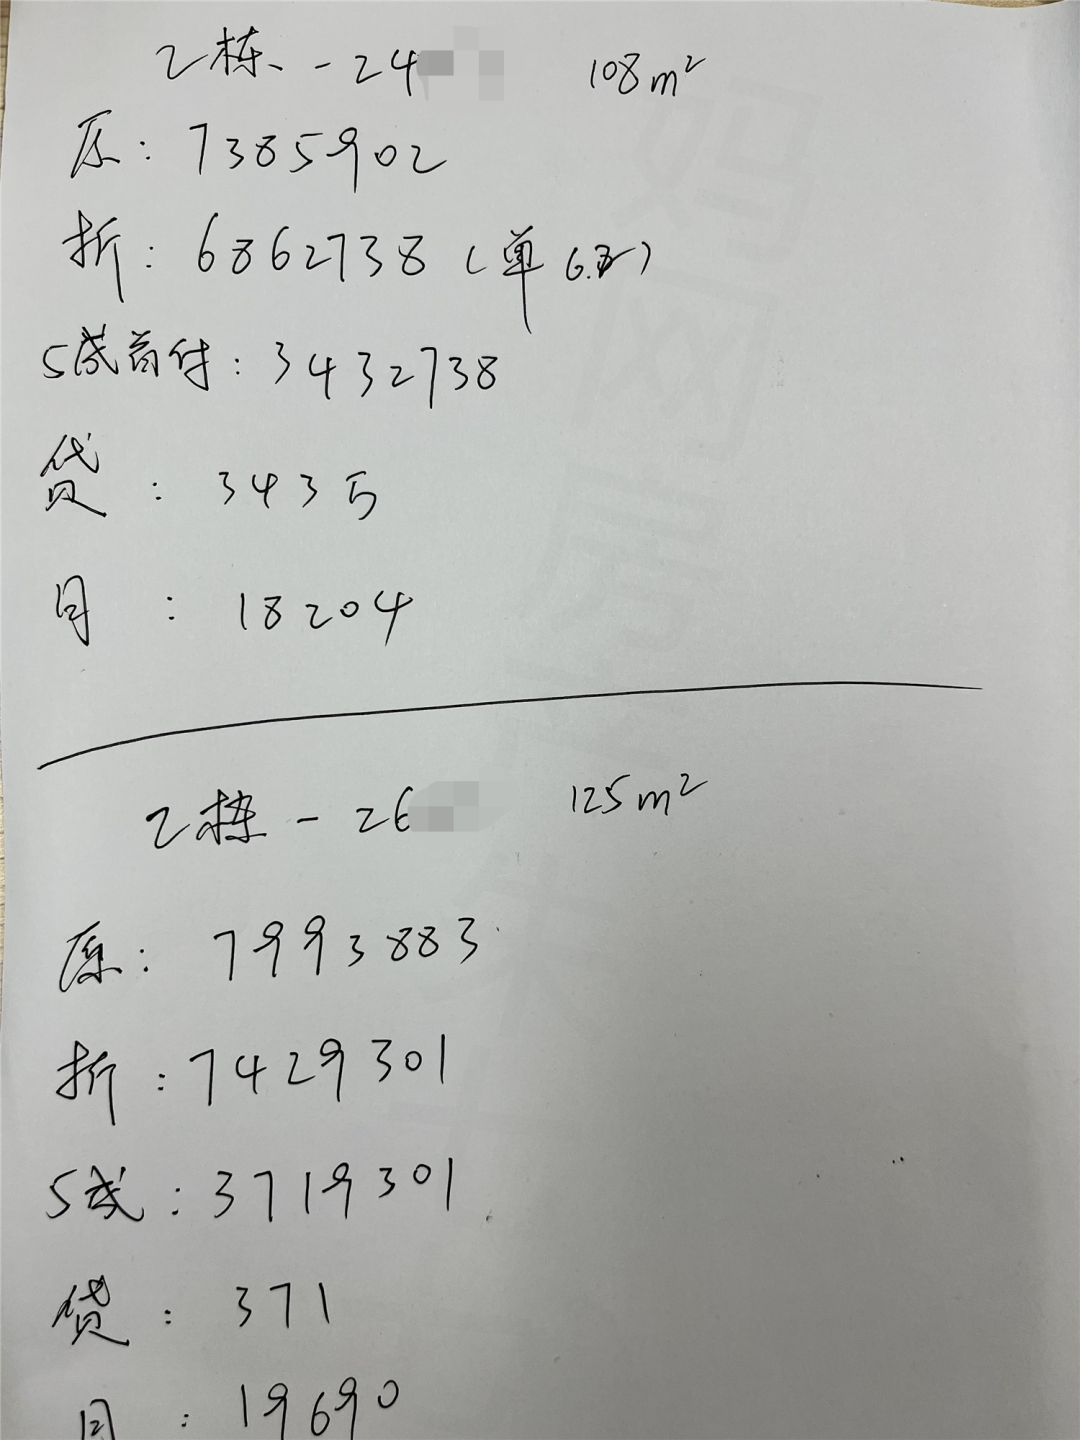 2栋、-24 108m²
原：7385902
折：6862738（单6.3）
5成首付：3432738
贷：343万
月：18204
2栋-26 125m²
原：7993883
折：7429301
5成：3719301
贷：371
月：19690